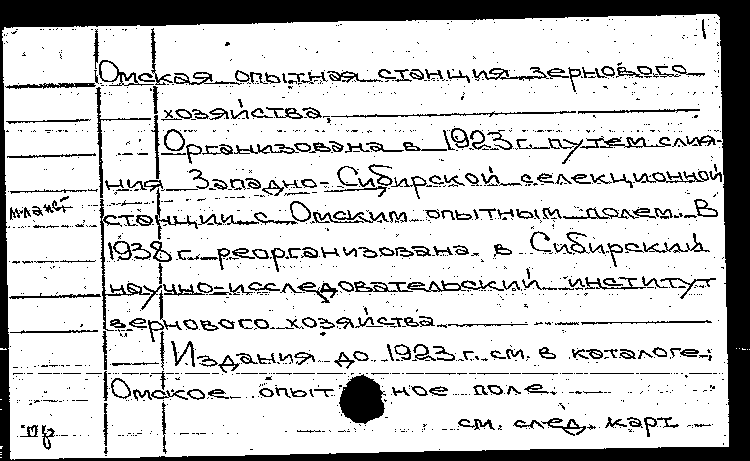 1
Омская опытная станция зернового
хозяйства.
Организована в 1923 г. путем слия-
ния Западно-Сибирской селекционной
станции с Омским опытным полем. В
1938 г. реорганизована в Сибирский
научно-исследовательский институт
зернового хозяйства
Издания до 1923 г. см. в каталоге:
Омское опытное поле.
см. след. карт.